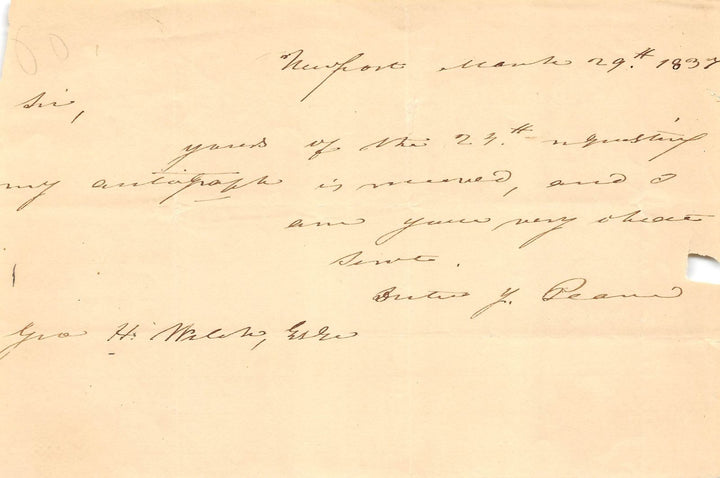 Newport March 29th 1837
Sir,
yours of the 24th requesting
my autograph is received, and I
am your very obedt
Servt.
Dutee J. Pearce
Geo H. Welch, Esqr